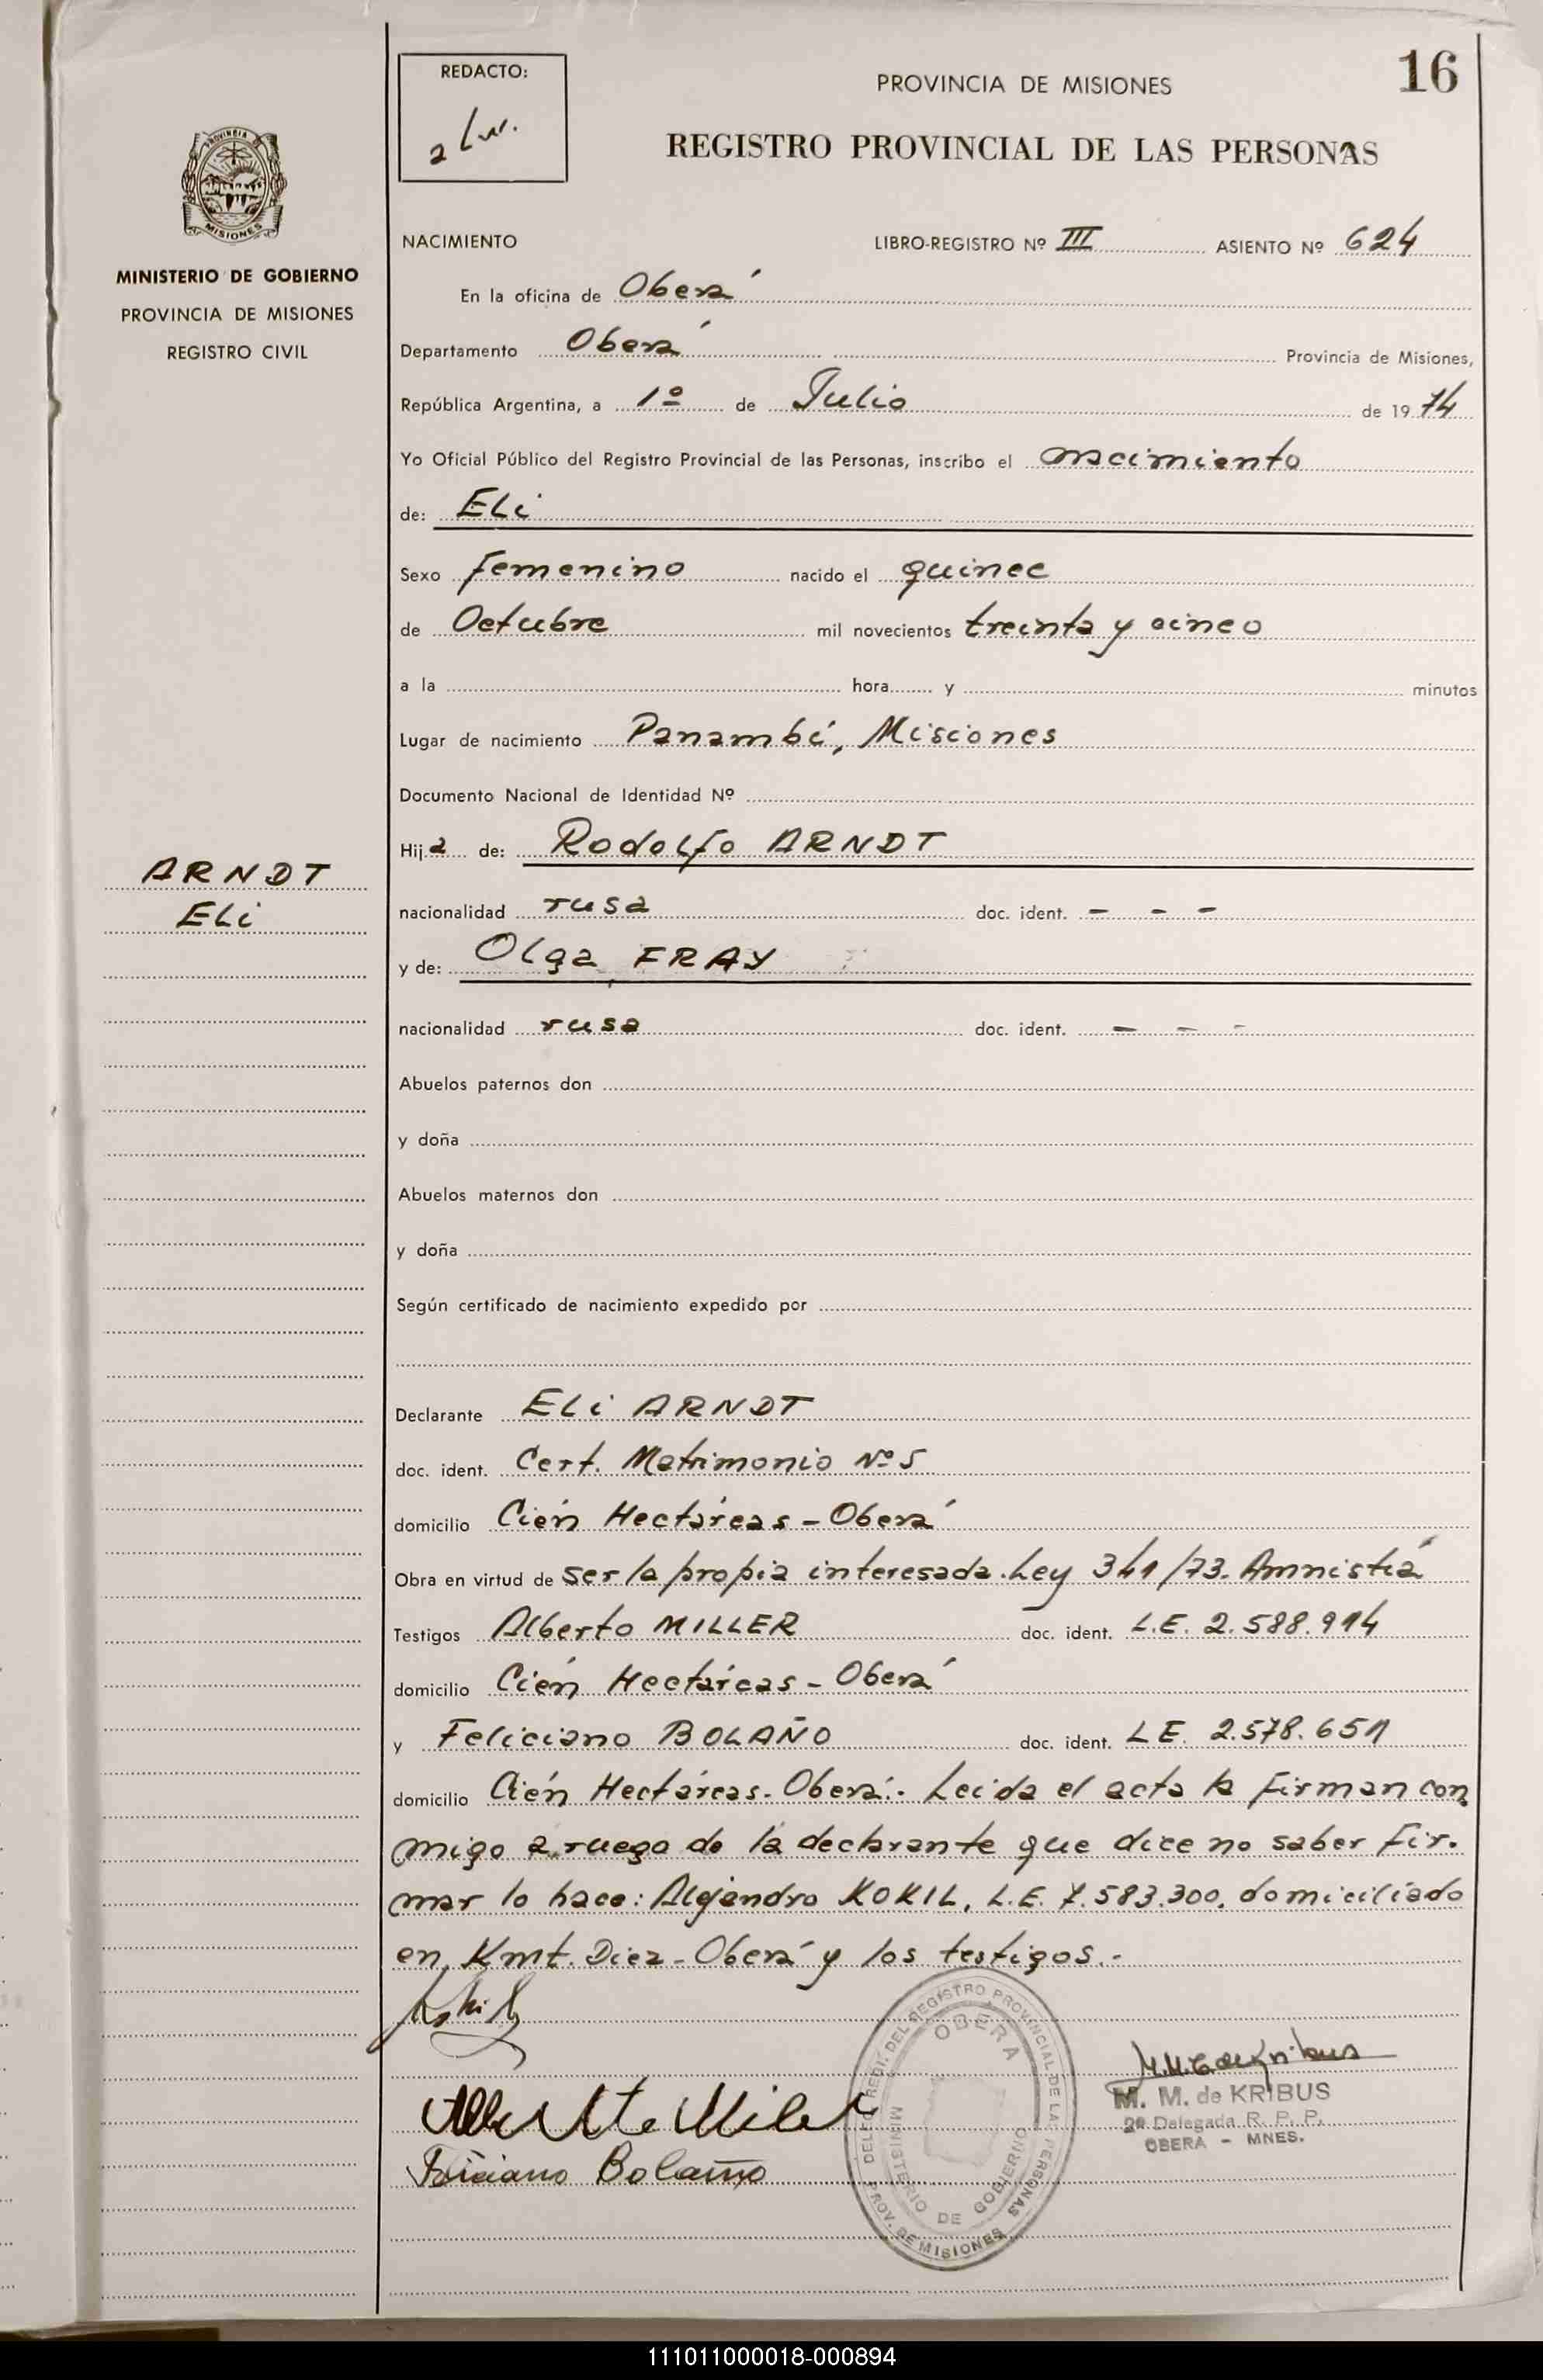 16
REDACTO:
PROVINCIA DE MISIONES
REGISTRO PROVINCIAL DE LAS PERSONAS
PROVINCIA
MISIONES
MINISTERIO DE GOBIERNO
PROVINCIA DE MISIONES
REGISTRO CIVIL
NACIMIENTO LIBRO-REGISTRO Nº III ASIENTO Nº 624
En la oficina de Oberá
Departamento Oberá Provincia de Misiones,
República Argentina, a 1º de Julio de 1974
Yo Oficial Público del Registro Provincial de las Personas, inscribo el nacimiento
de: Eli
Sexo femenino nacido el quince
de Octubre mil novecientos treinta y cinco
a la hora y minutos
Lugar de nacimiento Panambí, Misiones
Documento Nacional de Identidad Nº
Hija de: Rodolfo ARNDT
ARNDT
Eli
nacionalidad rusa doc. ident. - - -
y de: Olga FRAY
nacionalidad rusa doc. ident. - - -
Abuelos paternos don
y doña
Abuelos maternos don
y doña
Según certificado de nacimiento expedido por
Declarante Eli ARNDT
doc. ident. Cert. Matrimonio Nº 5
domicilio Cién Hectáreas - Oberá
Obra en virtud de ser la propia interesada. Ley 341/73. Amnistía
Testigos Alberto MILLER doc. ident. L.E. 2.588.914
domicilio Cién Hectáreas - Oberá
y Feliciano BOLAÑO doc. ident. LE. 2.578.651
domicilio Cién Hectáreas - Oberá.- Leida el acta la firman con
migo a ruego de la declarante que dice no saber fir-
mar lo hace: Alejandro KOKIL, L.E. 7.583.300, domiciliado
en Kmt. Diez - Oberá y los testigos.-
DELEG. REDI. DEL REGISTRO PROVINCIAL DE LAS PERSONAS
OBERA
MINISTERIO DE GOBIERNO
PROV. DE MISIONES
M. M. de Kribus
M. M. de KRIBUS
2ª Delegada R. P. P.
OBERA - MNES.
Alberto Miler
Feliciano Bolaño
111011000018-000894